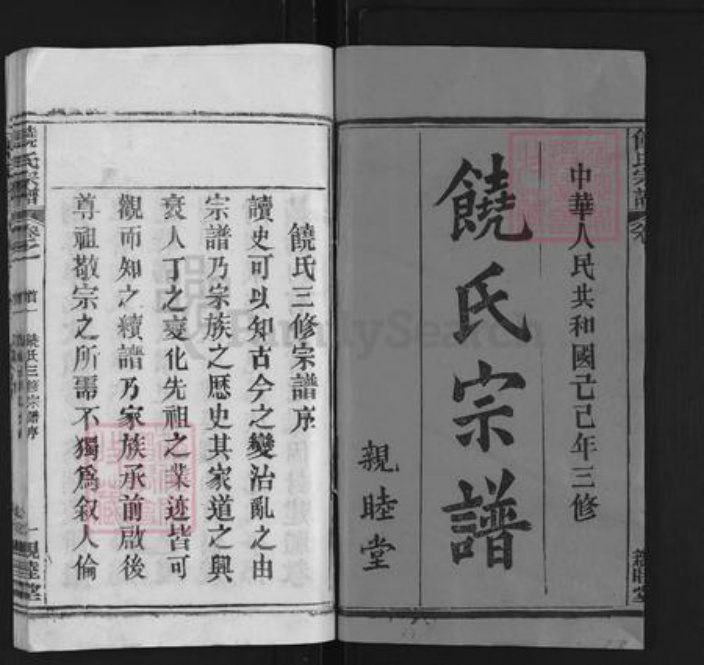 中華人民共和國己己年三修
饒氏宗譜
親睦堂
饒氏三修宗譜序
讀史可以知古今之變治亂之由
宗譜乃宗族之歷史其家道之興
衰人丁之變化先祖之業迹皆可
觀而知之續譜乃家族承前啟後
尊祖敬宗之所需不獨爲叙人倫
饒氏宗譜
卷之一
饒氏三修宗譜序
一親睦堂
FamilySearch